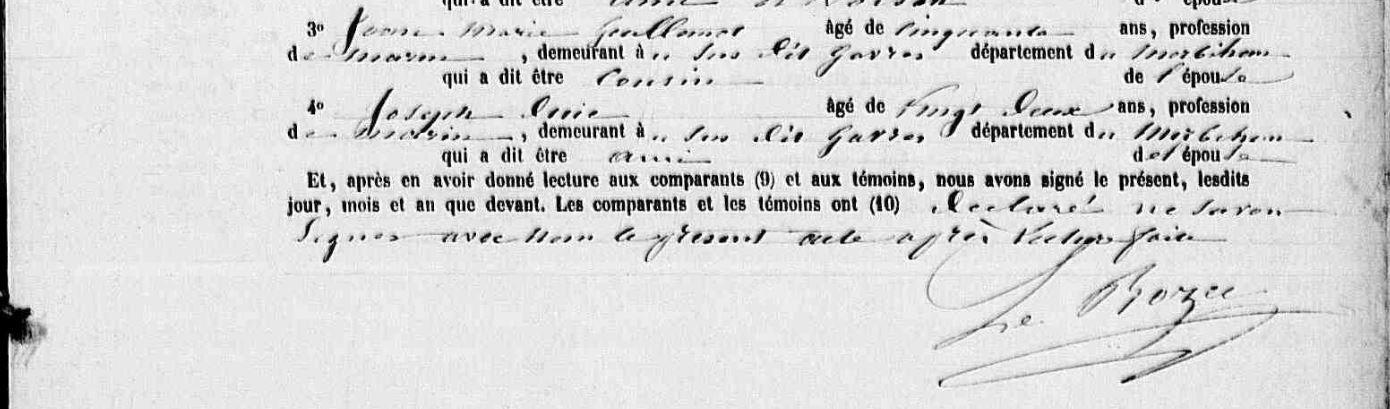 qui a dit être de l'épouse
3° Jean Marie Guillemot âgé de cinquante ans, profession
de marin, demeurant à u sus dit Gavres département du Morbihan
qui a dit être Cousin de l'épouse
4° Joseph âgé de vingt deux ans, profession
de marin, demeurant à u sus dit Gavres département du Morbihan
qui a dit être ami de l'épouse
Et, après en avoir donné lecture aux comparants (9) et aux témoins, nous avons signé le présent, lesdits
jour, mois et an que devant. Les comparants et les témoins ont (10) declaré ne savoir
Signer avec nous le présent acte après lecture faite
Le Rozec